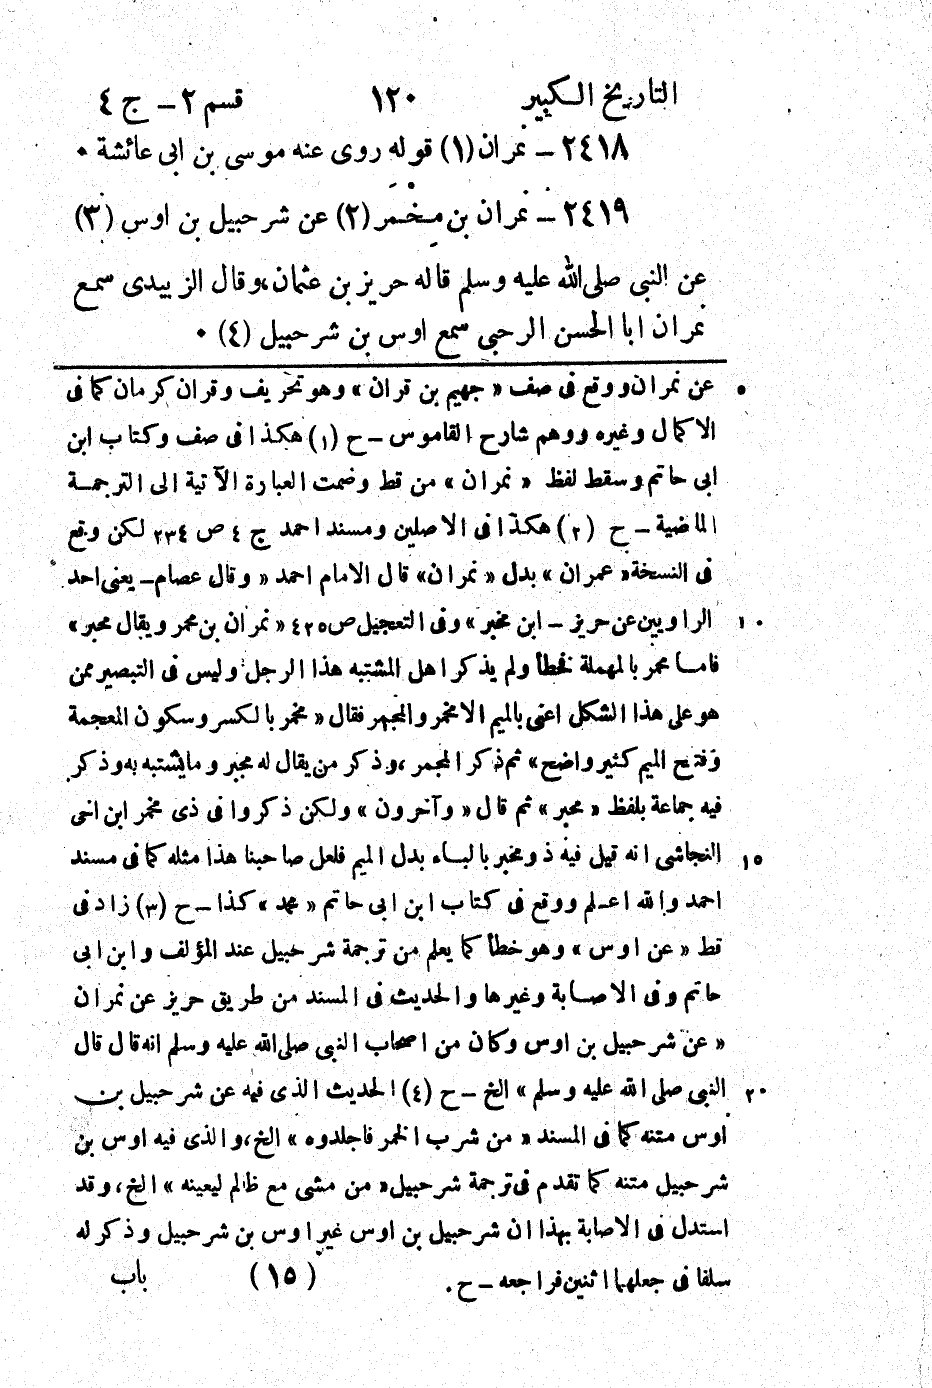 التاريخ الكبير ١٢٠ قسم ٢ - ج ٤
٢٤١٨ - نمران (١) قوله روى عنه موسى بن ابى عائشة ٠
٢٤١٩ - نمران بن مخمر (٢) عن شرحبيل بن اوس (٣)
عن النبى صلى الله عليه وسلم قاله حريز بن عثمان، وقال الزبيدى سمع
نمران ابا الحسن الرحبى سمع اوس بن شرحبيل (٤) ٠
عن نمران ووقع فى صف « جهيم بن قران » وهو تحريف وقران كرمان كما فى ٥
الاكمال وغيره ووهم شارح القاموس - ح (١) هكذا فى صف وكتاب ابن
ابى حاتم وسقط لفظ « نمران » من قط وضمت العبارة الآتية الى الترجمة
الماضية - ح (٢) هكذا فى الاصلين ومسند احمد ج ٤ ص ٢٣٤ لكن وقع
فى النسخة « عمران » بدل « نمران » قال الامام احمد « وقال عصام - يعنى احد
الراويين عن حريز - ابن مخبر » وفى التعجيل ص ٤٢٥ « نمران بن محمر ويقال محبر » ١٠
فاما محمر بالمهملة فخطأ ولم يذكر اهل المشتبه هذا الرجل وليس فى التبصير ممن
هو على هذا الشكل اعنى بالميم الا مخمر والمجمر فقال « مخمر بالكسر وسكون المعجمة
وفتح الميم كثير واضح » ثم ذكر المجمر، وذكر من يقال له مجبر وما يشتبه به وذكر
فيه جماعة بلفظ « محبر » ثم قال « وآخرون » ولكن ذكروا فى ذى مخمر ابن اخى
النجاشى انه قيل فيه ذو مخبر بالباء بدل الميم فلعل صاحبنا هذا مثله كما فى مسند ١٥
احمد والله اعلم ووقع فى كتاب ابن ابى حاتم « محمد » كذا - ح (٣) زاد فى
قط « عن اوس » وهو خطأ كما يعلم من ترجمة شرحبيل عند المؤلف وابن ابى
حاتم وفى الاصابة وغيرها والحديث فى المسند من طريق حريز عن نمران
« عن شرحبيل بن اوس وكان من اصحاب النبى صلى الله عليه وسلم انه قال قال
النبى صلى الله عليه وسلم » الخ - ح (٤) الحديث الذى فيه عن شرحبيل بن ٢٠
اوس متنه كما فى المسند « من شرب الخمر فاجلدوه » الخ، والذى فيه اوس بن
شرحبيل متنه كما تقدم فى ترجمة شرحبيل « من مشى مع ظالم ليعينه » الخ، وقد
استدل فى الاصابة بهذا ان شرحبيل بن اوس غير اوس بن شرحبيل وذكر له
سلفا فى جعلهما اثنين فراجعه - ح .
(١٥) باب